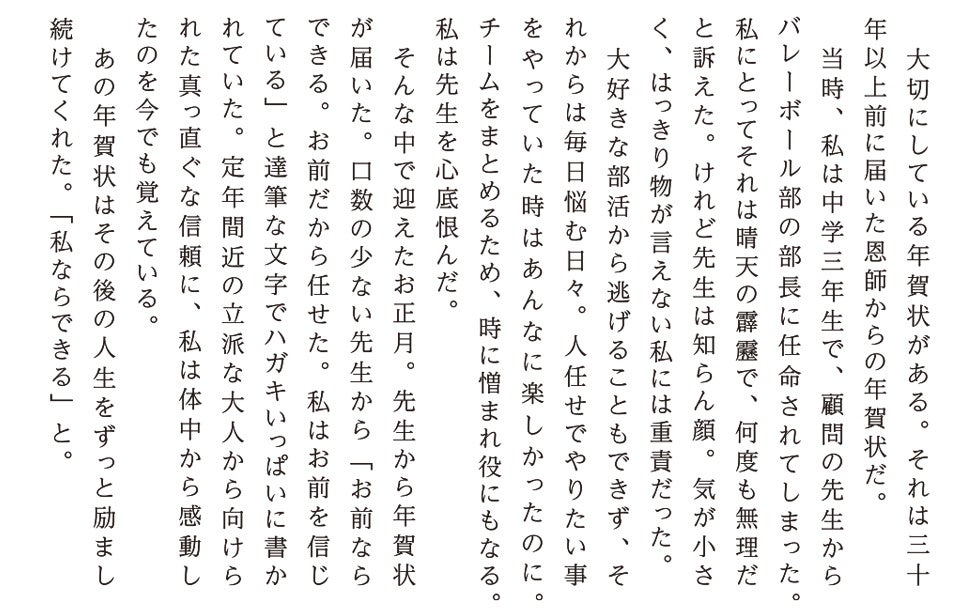 大切にしている年賀状がある。それは三十
年以上前に届いた恩師からの年賀状だ。
当時、私は中学三年生で、顧問の先生から
バレーボール部の部長に任命されてしまった。
私にとってそれは晴天の霹靂で、何度も無理だ
と訴えた。けれど先生は知らん顔。気が小さ
く、はっきり物が言えない私には重責だった。
大好きな部活から逃げることもできず、そ
れからは毎日悩む日々。人任せでやりたい事
をやっていた時はあんなに楽しかったのに。
チームをまとめるため、時に憎まれ役にもなる。
私は先生を心底恨んだ。
そんな中で迎えたお正月。先生から年賀状
が届いた。口数の少ない先生から「お前なら
できる。お前だから任せた。私はお前を信じ
ている」と達筆な文字でハガキいっぱいに書か
れていた。定年間近の立派な大人から向けら
れた真っ直ぐな信頼に、私は体中から感動し
たのを今でも覚えている。
あの年賀状はその後の人生をずっと励まし
続けてくれた。「私ならできる」と。